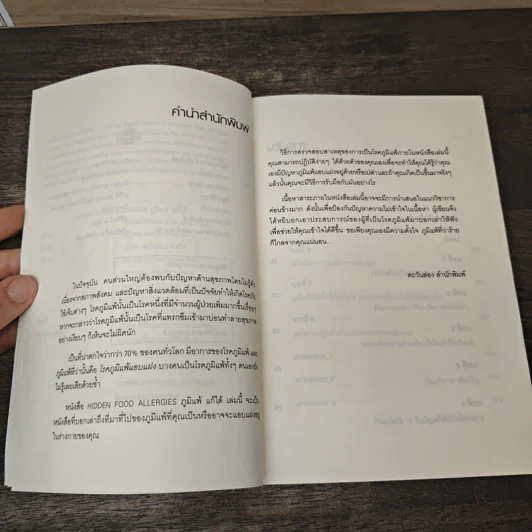 คำนำสำนักพิมพ์
ในปัจจุบัน คนส่วนใหญ่ต้องพบกับปัญหาด้านสุขภาพโดยไม่รู้ตัว
เนื่องจากสภาพสังคม และปัญหาสิ่งแวดล้อมที่เป็นปัจจัยทำให้เกิดโรคภัย
ไข้เจ็บต่างๆ โรคภูมิแพ้นั้นเป็นโรคหนึ่งที่มีจำนวนผู้ป่วยเพิ่มมากขึ้นเรื่อยๆ
หากจะกล่าวว่าโรคภูมิแพ้นั้นเป็นโรคที่แทรกซึมเข้ามาบ่อนทำลายสุขภาพ
อย่างเงียบๆ ก็เห็นจะไม่ผิดนัก
เป็นที่น่าตกใจว่ากว่า 70% ของคนทั่วโลก มีอาการของโรคภูมิแพ้ และ
ภูมิแพ้ที่ว่านั้นคือ โรคภูมิแพ้แอบแฝง บางคนเป็นโรคภูมิแพ้ทั้งๆ ตนเองยัง
ไม่รู้เลยเสียด้วยซ้ำ
หนังสือ HIDDEN FOOD ALLERGIES ภูมิแพ้ แก้ได้ เล่มนี้ จะเป็น
หนังสือที่บอกเล่าถึงที่มาที่ไปของภูมิแพ้ที่คุณเป็นหรืออาจจะแอบแฝงอยู่
ในร่างกายของคุณ
วิธีการตรวจสอบสาเหตุของการเป็นโรคภูมิแพ้ภายในหนังสือเล่มนี้
คุณสามารถปฏิบัติง่ายๆ ได้ด้วยตัวของคุณเองเพื่อจะทำให้คุณได้รู้ว่าคุณ
เองมีปัญหาภูมิแพ้แอบแฝงอยู่ด้วยหรือเปล่าและถ้าคุณเกิดเป็นขึ้นมาจริงๆ
แล้วนั้นคุณจะมีวิธีการรับมือกับมันอย่างไร
เนื้อหาสาระภายในหนังสือเล่มนี้อาจจะมีการนำเสนอในแนววิชาการ
ค่อนข้างมาก ดังนั้นเพื่อป้องกันปัญหาความไม่เข้าใจในเนื้อหา ผู้เขียนจึง
ได้หยิบยกเอาประสบการณ์ของผู้ที่เป็นโรคภูมิแพ้มาบอกเล่าให้ฟัง
เพื่อช่วยให้คุณเข้าใจได้ดีขึ้น ขอเพียงคุณเองมีความตั้งใจ ภูมิแพ้ที่ว่าร้าย
ก็ไกลจากคุณแน่นอน...
ตะวันส่อง สำนักพิมพ์